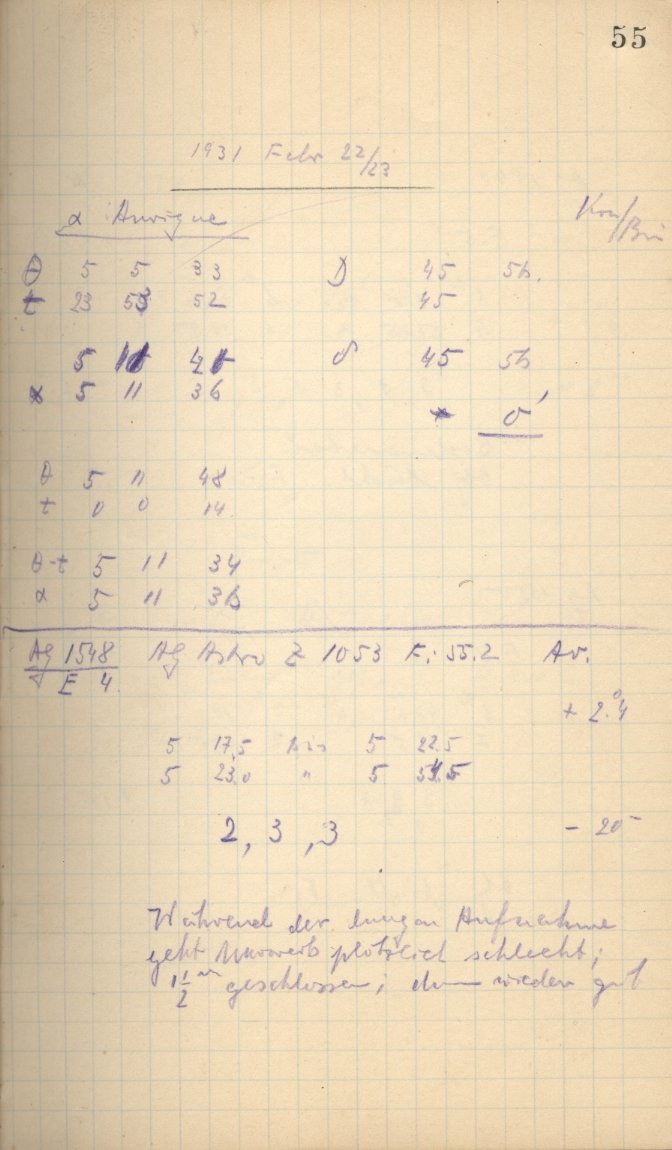 55
1931 Febr 22/23
α Aurigae
θ 5 5 33 D 45 56.
t 23 53 52 45
5 11 41 δ 45 56
α 5 11 36
0'
θ 5 11 48
t 0 0 14
θ-t 5 11 34
α 5 11 36
Ag 1548 Ag Astro Z 1053 F: 55.2
E 4
+ 2.°4
5 17,5 bis 5 22.5
5 23.0 " 5 54.5
2, 3, 3
- 20
Während der langen Aufnahme
geht Uhrwerk plötzlich schlecht;
1 1/2 m geschlossen; dann wieder gut